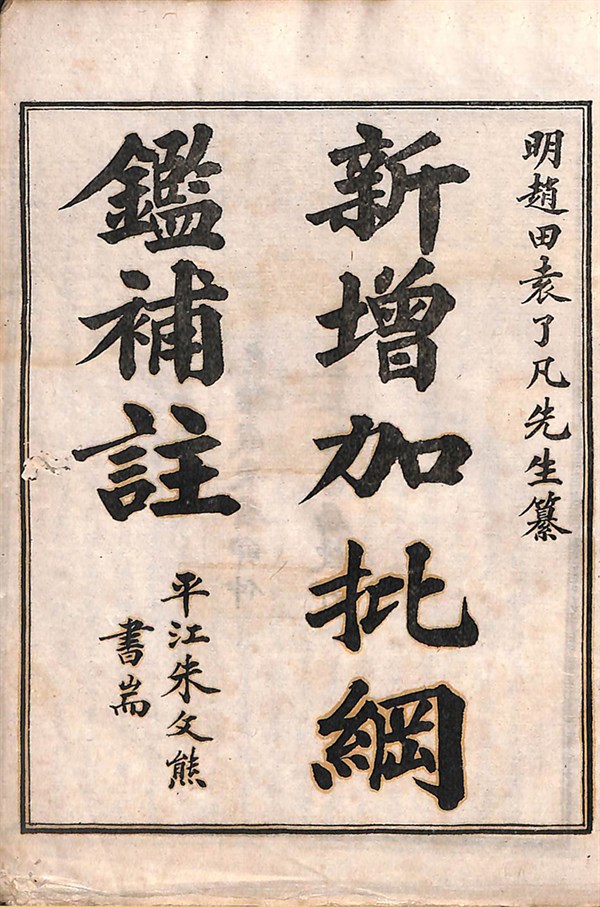 明趙田袁了凡先生纂
新增加批綱
鑑補註
平江朱文熊
書耑